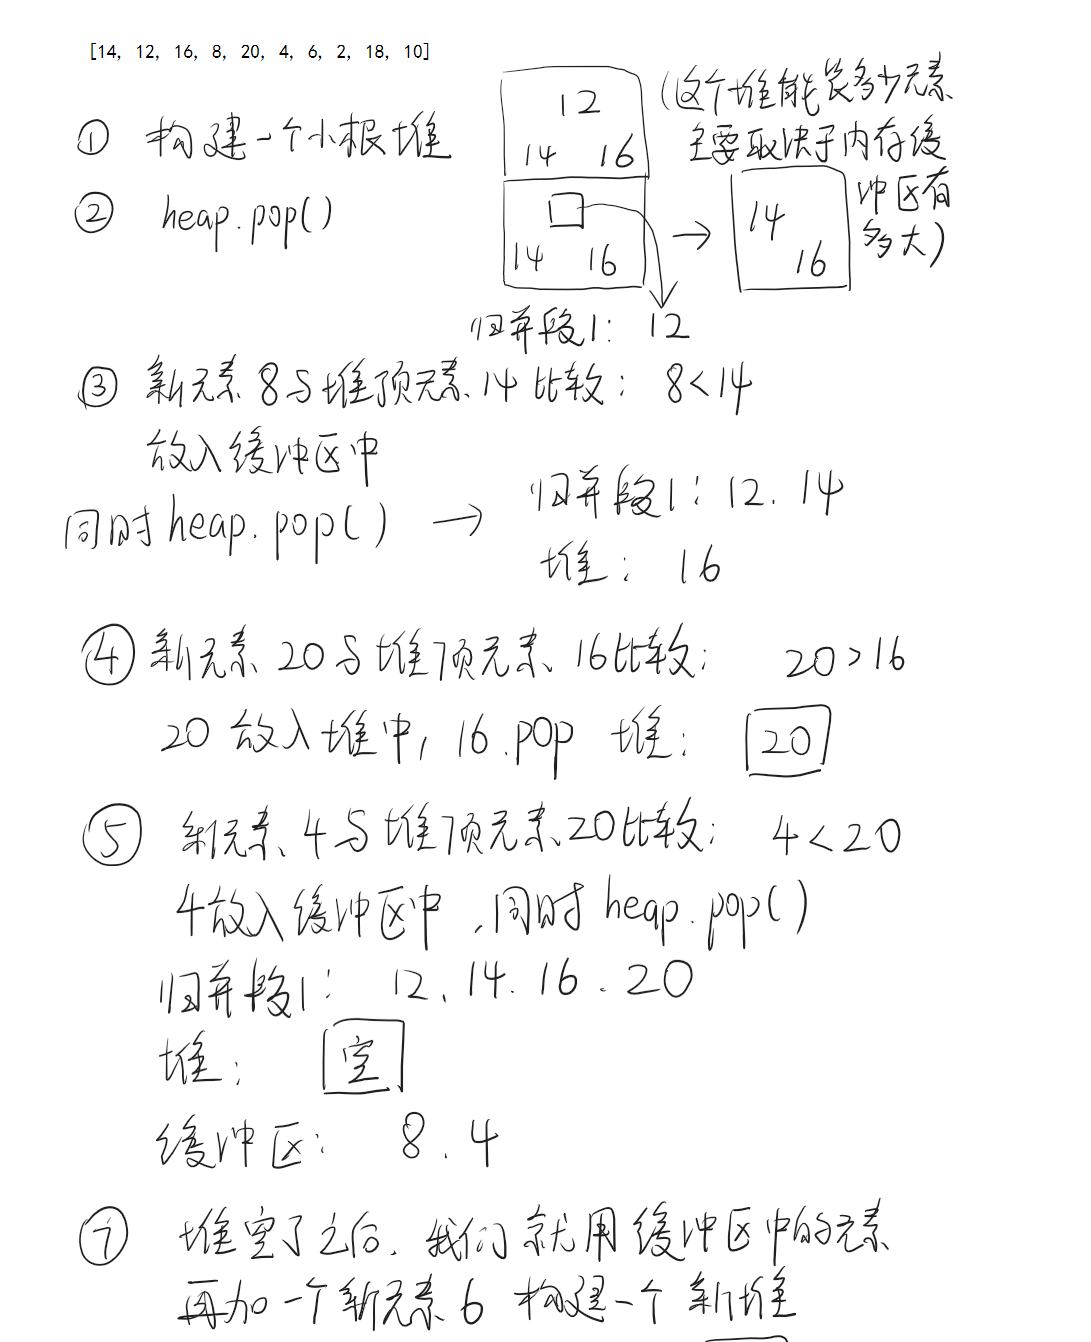 [14, 12, 16, 8, 20, 4, 6, 2, 18, 10]
① 构建一个小根堆
12
14 16
(这个堆能装多少元素
主要取决于内存缓
冲区有
多大)
② heap.pop()
14 16
→
14
16
归并段1: 12
③ 新元素8与堆顶元素14比较: 8<14
放入缓冲区中
同时heap.pop() → 归并段1: 12. 14
堆: 16
④ 新元素20与堆顶元素16比较: 20>16
20放入堆中, 16.pop 堆: 20
⑤ 新元素4与堆顶元素20比较: 4<20
4放入缓冲区中,同时heap.pop()
归并段1: 12. 14. 16. 20
堆: 空
缓冲区: 8. 4
⑦ 堆空了之后,我们就用缓冲区中的元素
再加一个新元素6 构建一个新堆